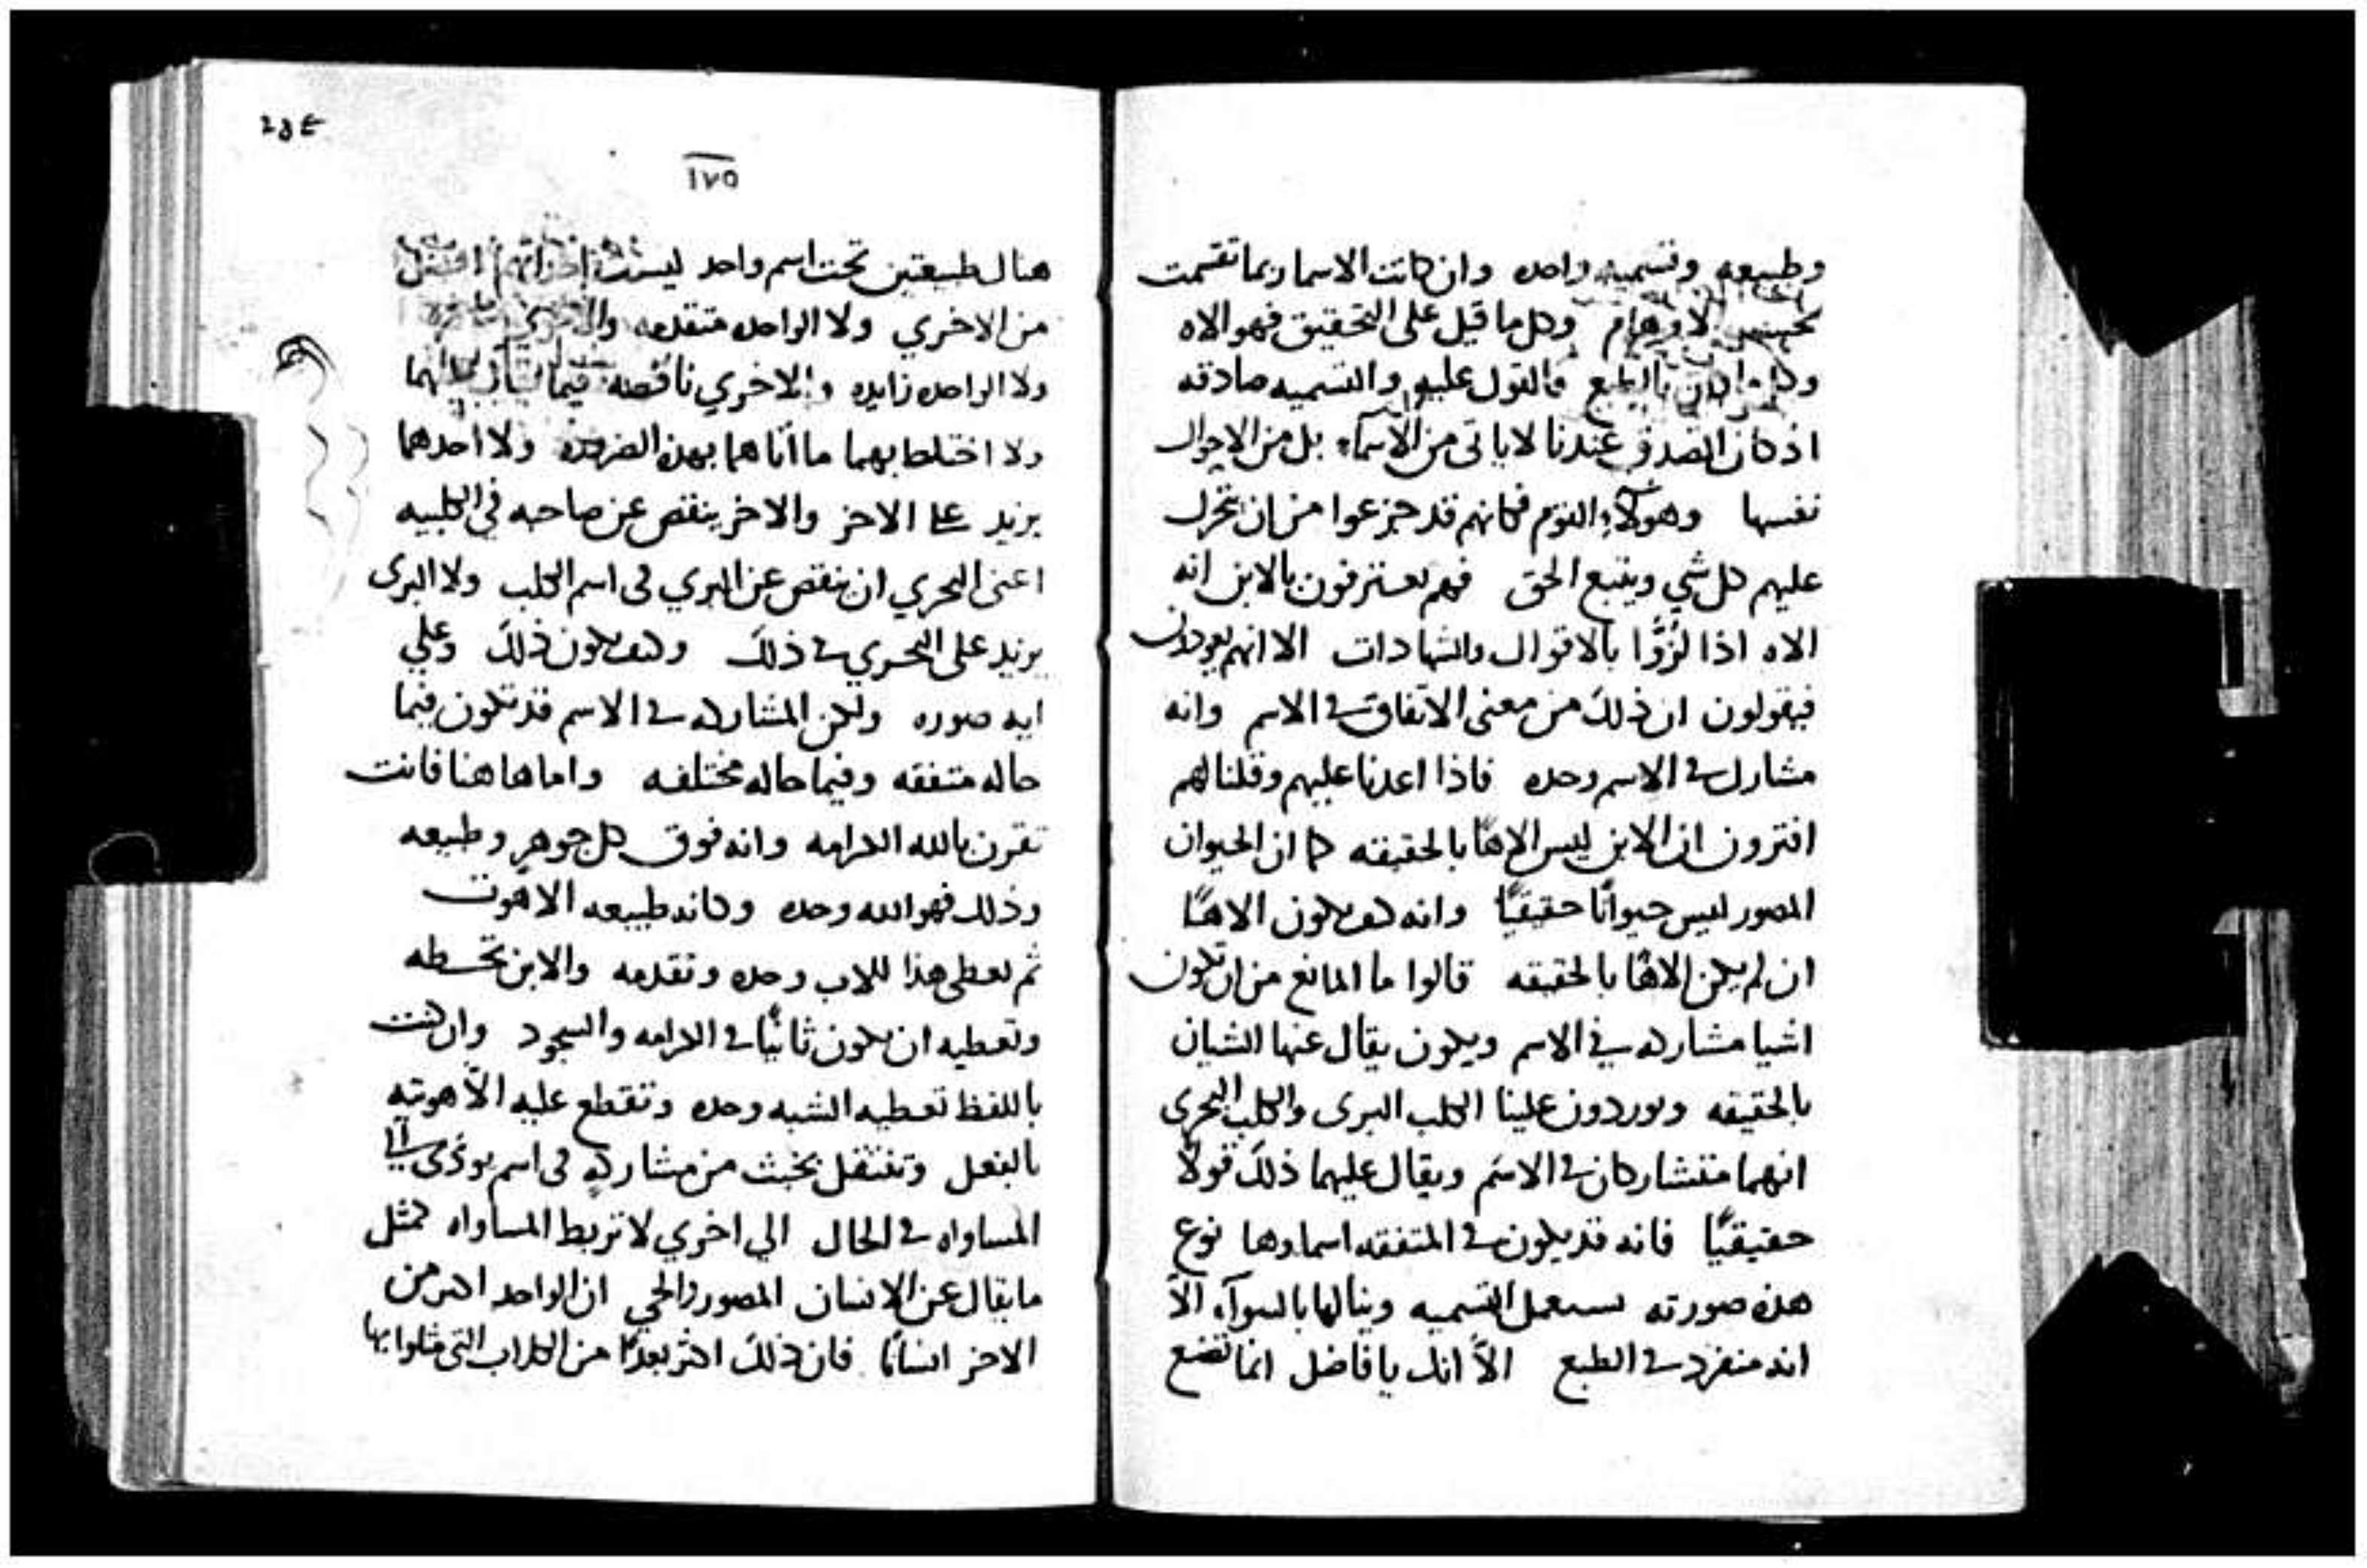 وطبيعه وتسميه واحده وان كانت الاسما ربما تقسمت
الاوهام وكل ما قيل على التحقيق فهو الاه
وكلما كان بالطبع فالقول عليه والتسميه صادقه
اذ كان الصدق عندنا لا ياتى من الاسمآء بل من الاحوال
نفسها وهولآء القوم فكانهم قد جزعوا من ان تحرك
عليهم كل شي ويتبع الحق فهم يعترفون بالابن انه
الاه اذا لزُّوا بالاقوال والشهادات الا انهم يعودون
فيقولون ان ذلك من معنى الاتفاق في الاسم وانه
مشارك في الاسم وحده فاذا اعدنا عليهم وقلنا لهم
افترون ان الابن ليس الاهًا بالحقيقه كما ان الحيوان
المصور ليس حيوانًا حقيقيًا وانه كيف يكون الاهًا
ان لم يكن الاهًا بالحقيقه قالوا ما المانع من ان تكون
اشيا مشاركه في الاسم ويكون يقال عنها الشيان
بالحقيقه ويوردون علينا الكلب البرى والكلب البحرى
انهما متشاركان في الاسم ويقال عليهما ذلك قولاً
حقيقيًا فانه قد يكون في المتفقه اسماوها نوع
هذه صورته يستعمل التسميه وينالها بالسوآء الاّ
انه منفرد في الطبع الاّ انك يا فاضل انما تضع
٢٥٤
١٧٥
هناك طبيعتين تحت اسم واحد ليست افضل
من الاخري ولا الواحده متقدمه
ولا الواحده زايده والاخري ناقصه فيما
ولا اختلط بهما ما اتاهما بهذه الضروره ولا احدهما
يزيد على الاخر والاخر ينقص عن صاحبه في الكلبيه
اعنى البحري ان ينقص عن البري في اسم الكلب ولا البرى
يزيد على البحري في ذلك وكيف يكون ذلك وعلي
ايه صوره ولكن المشاركه في الاسم قد تكون فيما
حاله متفقه وفيما حاله مختلفه واما هاهنا فانت
تقرن بالله الكرامه وانه فوق كل جوهر وطبيعه
وذلك فهو الله وحده وكانه طبيعه الاهوت
ثم تعطى هذا للاب وحده وتقدمه والابن تحسطه
وتعطيه ان يكون ثانيًا في الكرامه والسجود وان كنت
باللفظ تعطيه الشبه وحده وتقطع عليه الاّهوتيه
بالفعل وتنتقل بخبث من مشاركه في اسم يودى الي
المساواه في الحال الي اخري لا تربط المساواه كمثل
ما يقال عن الانسان المصور والحي ان الواحد اكثر من
الاخر انسانًا فان ذلك اكثر بعدًا من الكلاب التي مثلوا بها